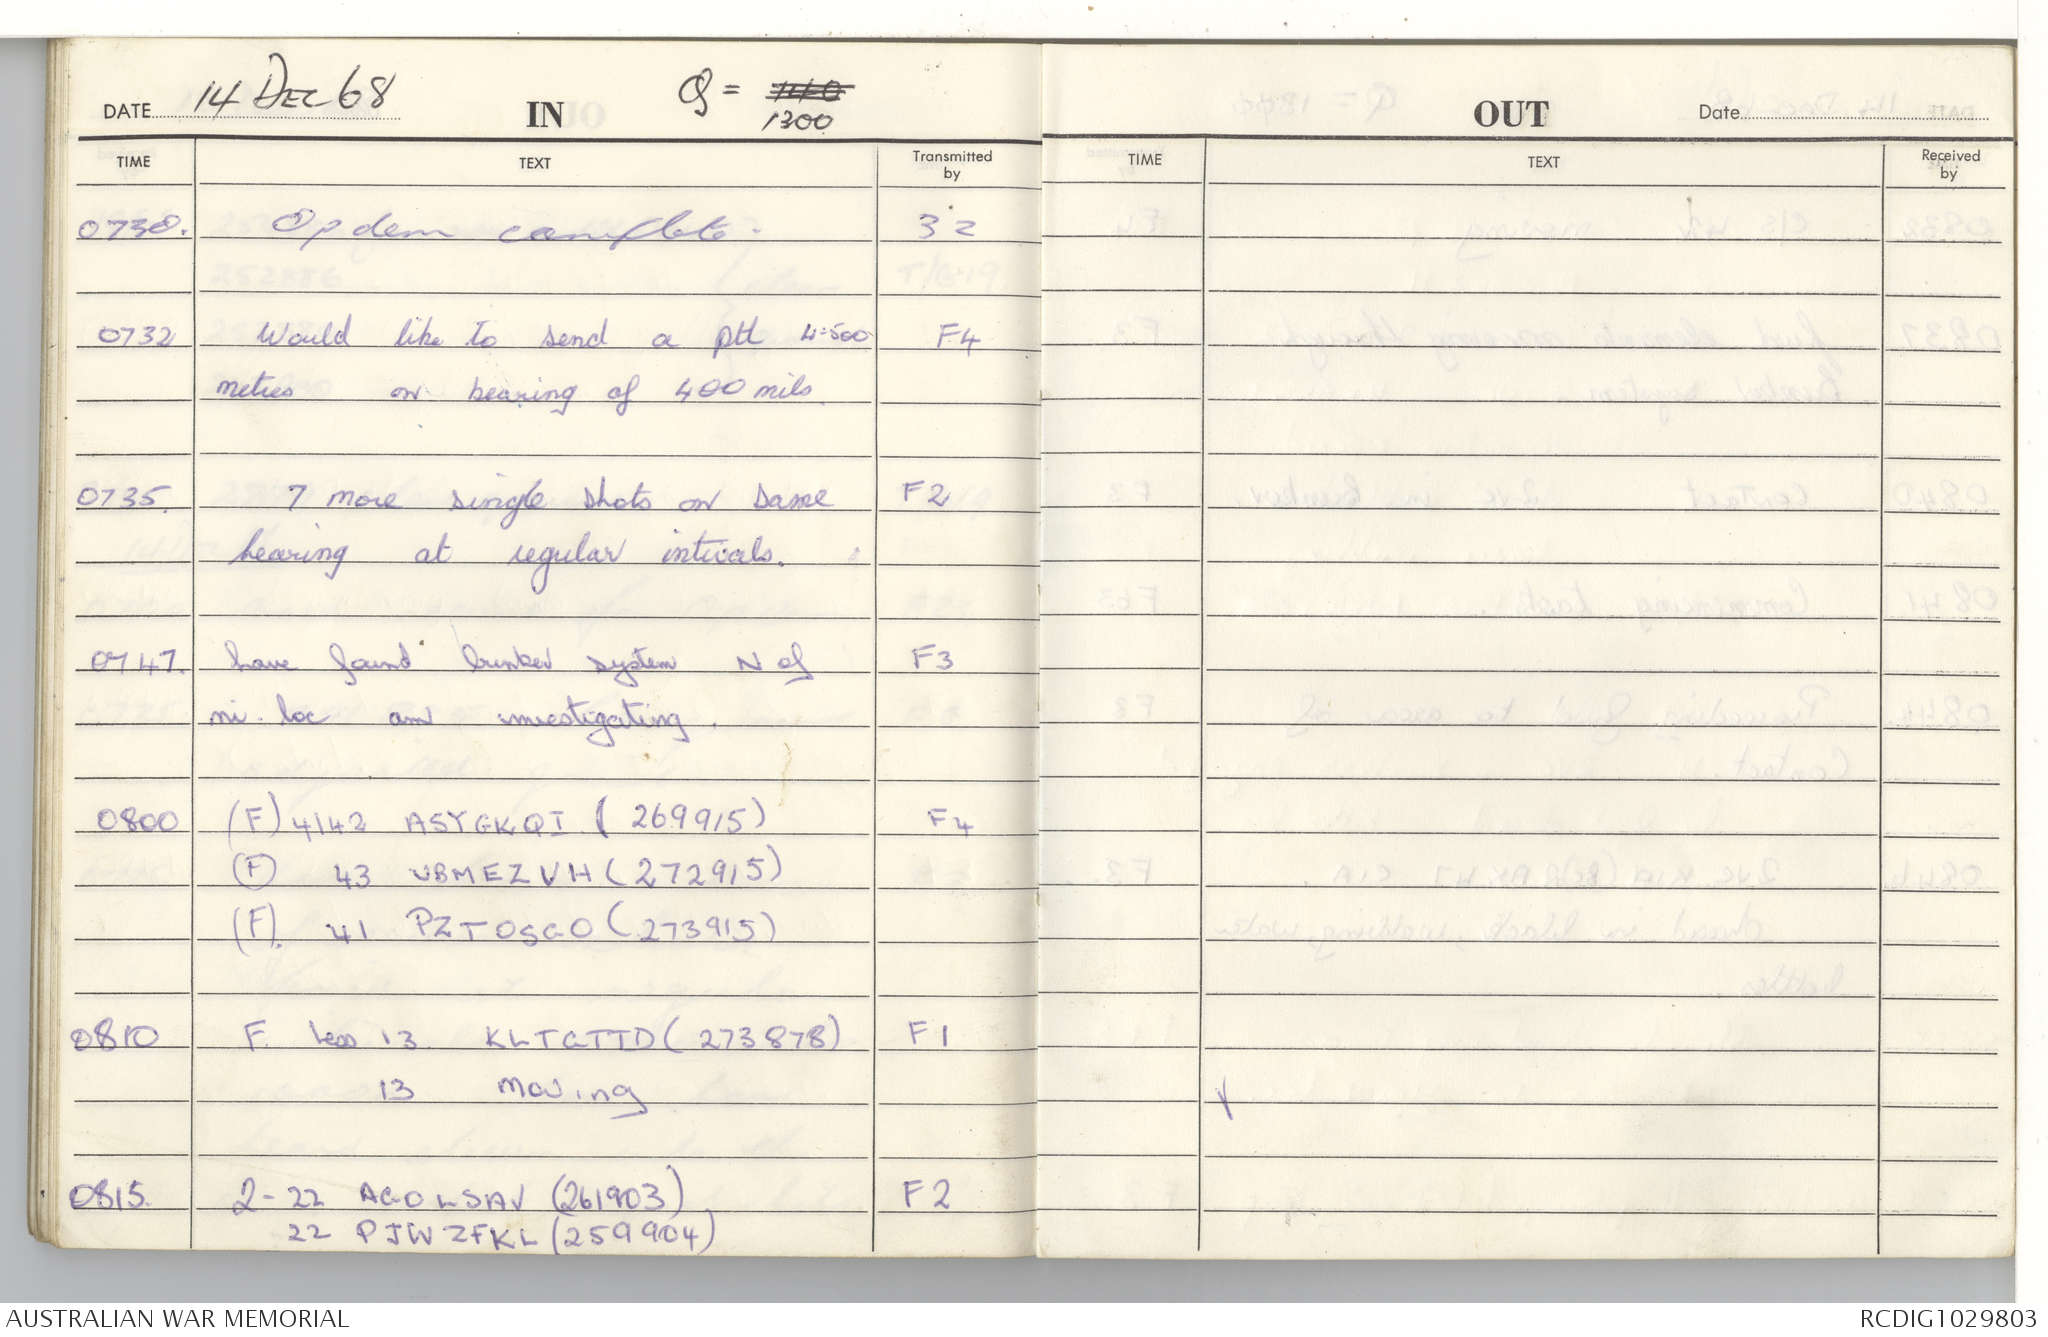 DATE 14 DEC 68 IN Q = 1300
TIME TEXT Transmitted by
0730. Op dem complete. 32
0732 Would like to send a ptl 4-500 F4
metres on bearing of 400 mils.
0735. 7 more single shots on same F2
bearing at regular intivals.
0747. have found bunker system N of F3
mi. loc am investigating.
0800 (F) 4142 ASYGKQI (269915) F4
(F) 43 UBMEZVH (272915)
(F). 41 PZTOSGO (273915)
0810 F. less 13 KLTGTTD (273878) F1
13 Moving
0815. 2-22 AGOLSAV (261903) F2
22 PJWZFKL (259904)
OUT Date
TIME TEXT Received by
AUSTRALIAN WAR MEMORIAL RCDIG1029803